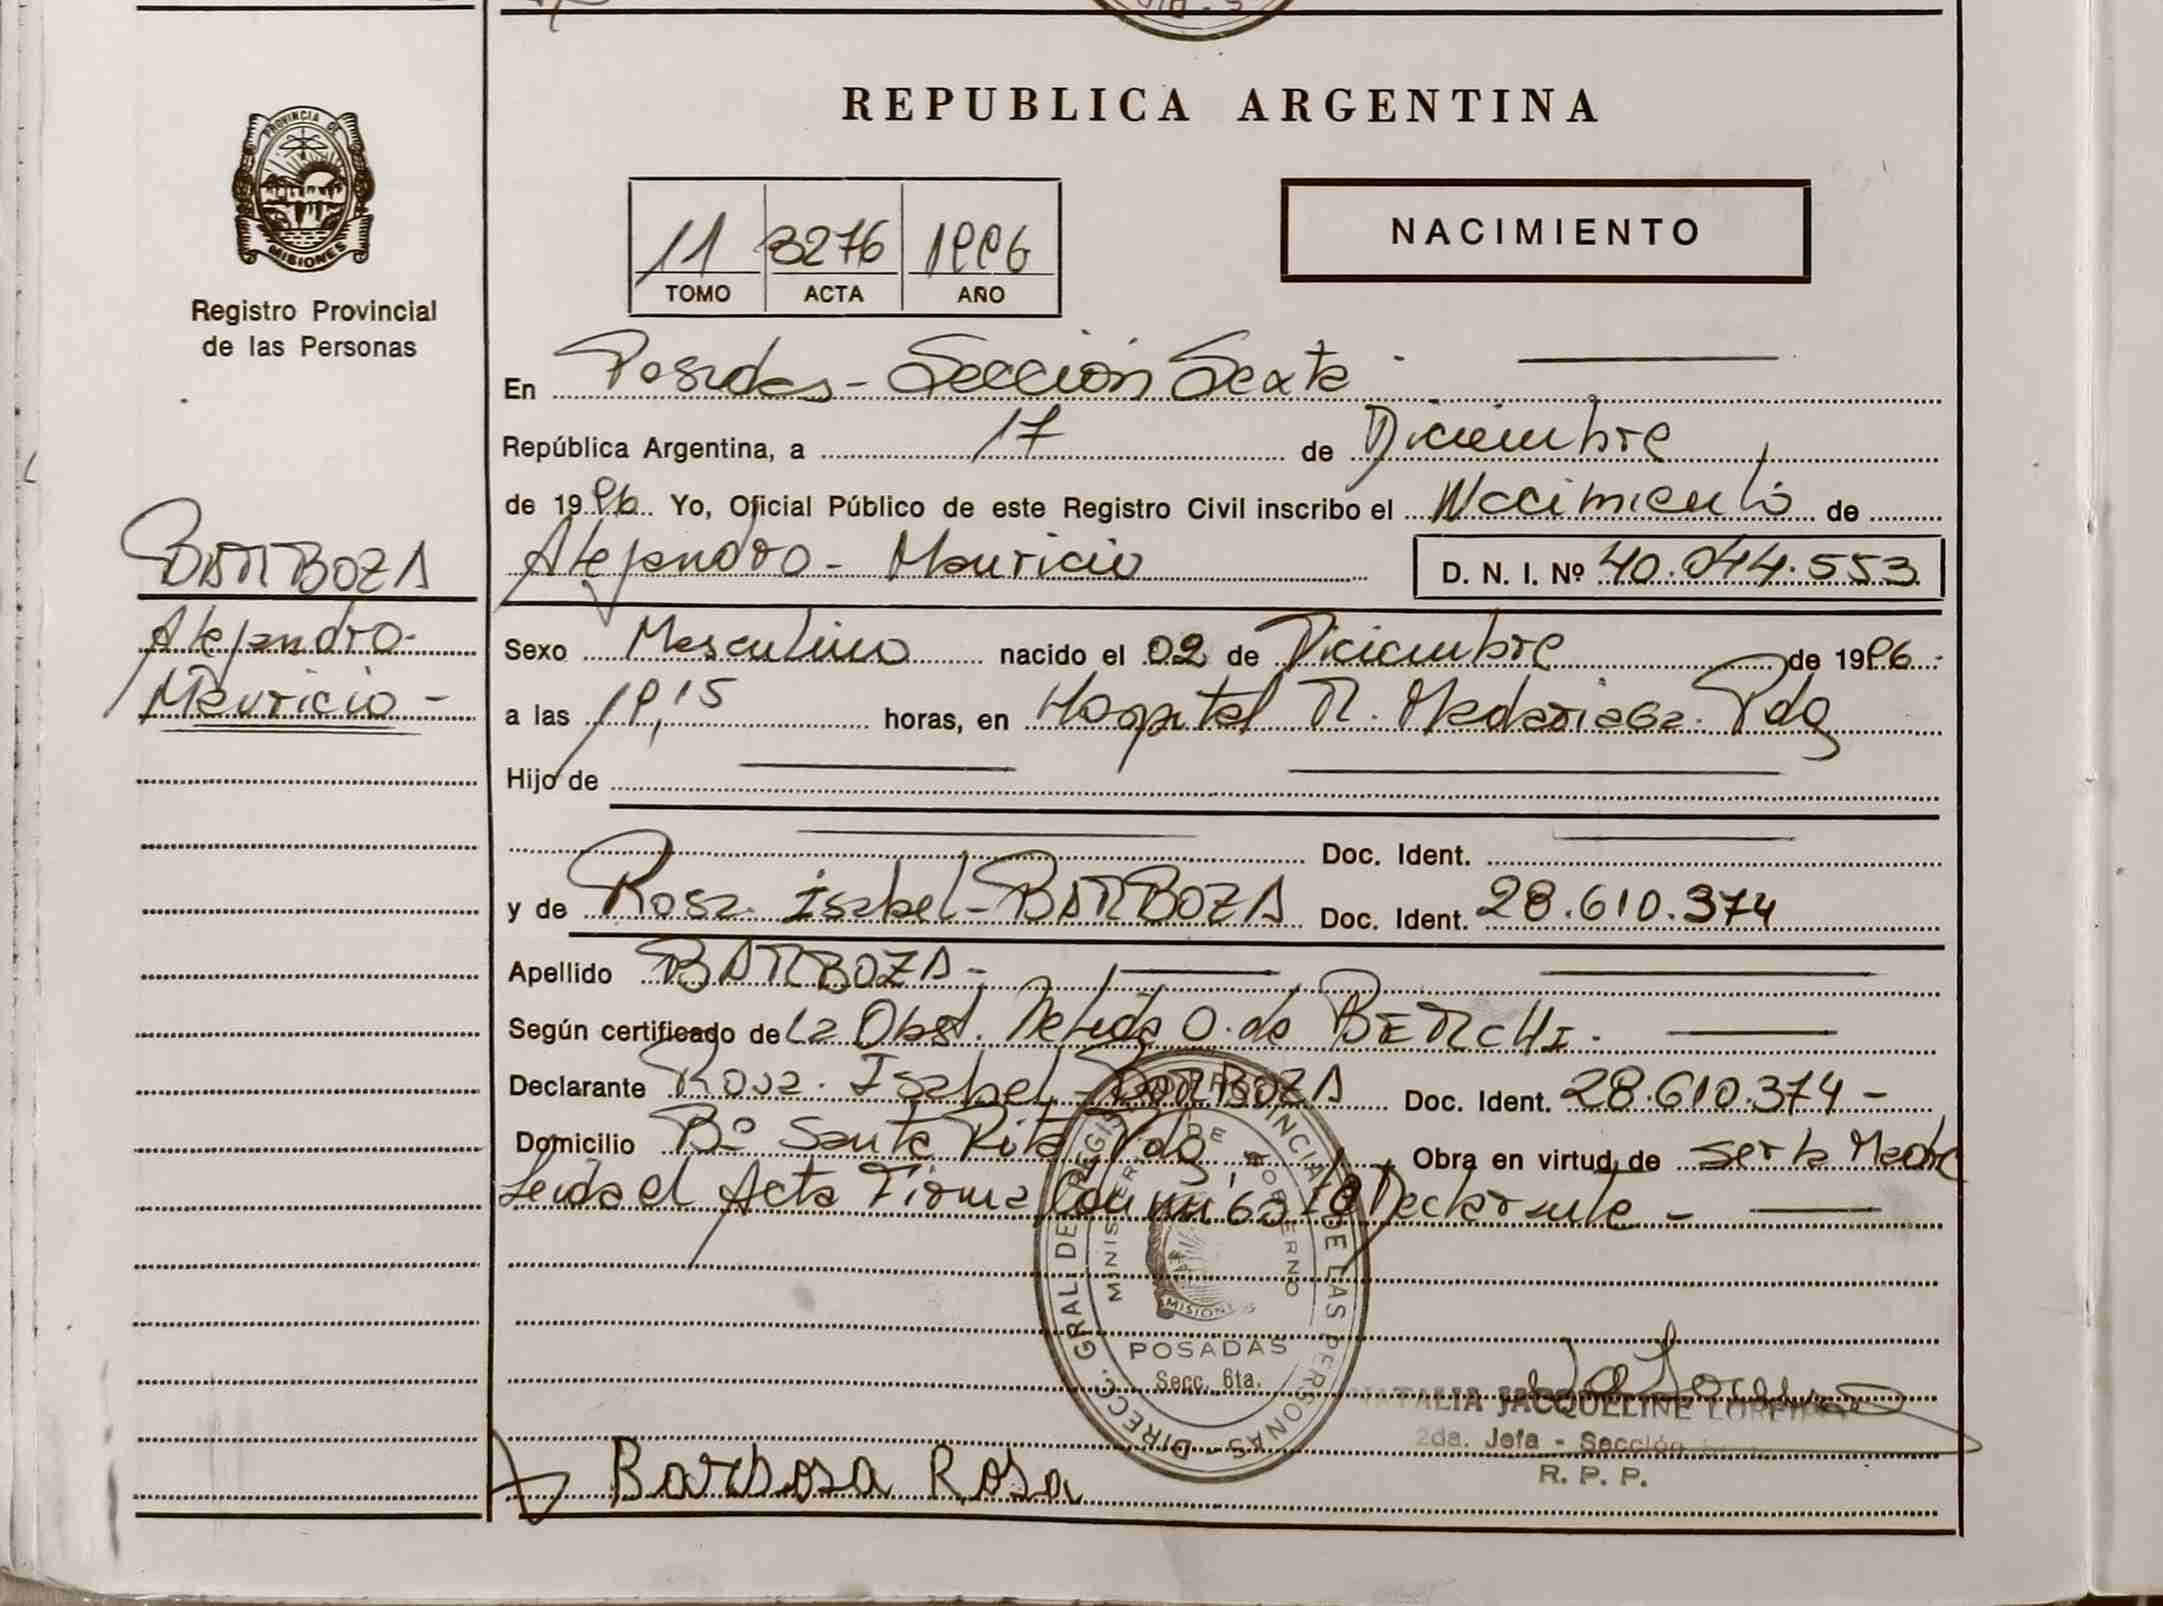 REPUBLICA ARGENTINA
PROVINCIA DE
MISIONES
Registro Provincial
de las Personas
11 3276 1996
TOMO ACTA AÑO
NACIMIENTO
En Posadas - Sección Sexta
República Argentina, a 17 de Diciembre
de 1996 Yo, Oficial Público de este Registro Civil inscribo el Nacimiento de
Alejandro - Mauricio D. N. I. Nº 40.044.553
BARBOZA
Alejandro-
Mauricio -
Sexo Masculino nacido el 02 de Diciembre de 1996.
a las 19,15 horas, en Hospital R. Madariaga. Pdas
Hijo de
Doc. Ident.
y de Rosa Isabel - BARBOZA Doc. Ident. 28.610.374
Apellido BARBOZA -
Según certificado de La Obst. Nelida O. de BERCHI.
Declarante Rosa. Isabel - BARBOZA Doc. Ident. 28.610.374 -
Domicilio Bº Santa Rita Pdas Obra en virtud de ser la Madre
Leida el Acta Firma Conmigo la Declarante -
DIRECC. GRAL DEL REGISTRO PROVINCIAL DE LAS PERSONAS
MINISTERIO DE GOBIERNO
MISIONES
POSADAS
Secc. 6ta.
NATALIA JACQUELINE
2da. Jefa - Sección
R. P. P.
Barbosa Rosa